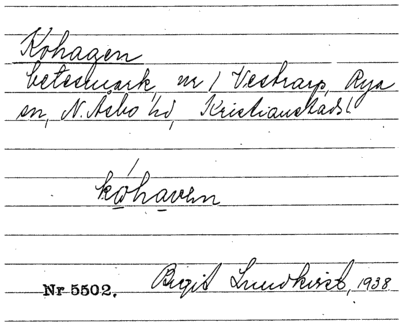 Kohagen
betesmark, nr 1 Vestrarp, Rya
sn, N. Åsbo hd, Kristianstads l.
kóhaven
Nr 5502. Birgit Lundkvist, 1938